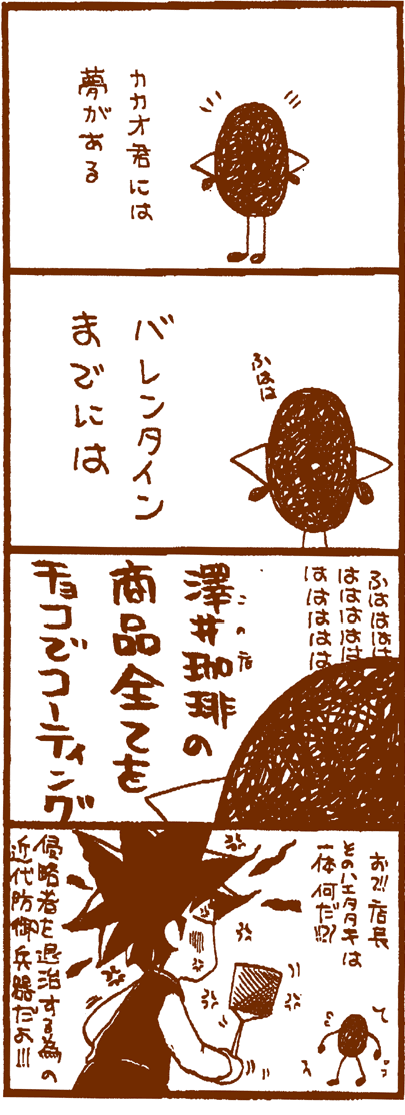 カカオ君には
夢がある
ふはは
バレンタイン
までには
ふははは
はははは
はははは
澤井珈琲の
この店
商品全てを
チョコでコーティング
おう!!店長
そのハエタタキは
一体何だ!!?
侵略者を退治する為の
近代防御兵器だよ!!!